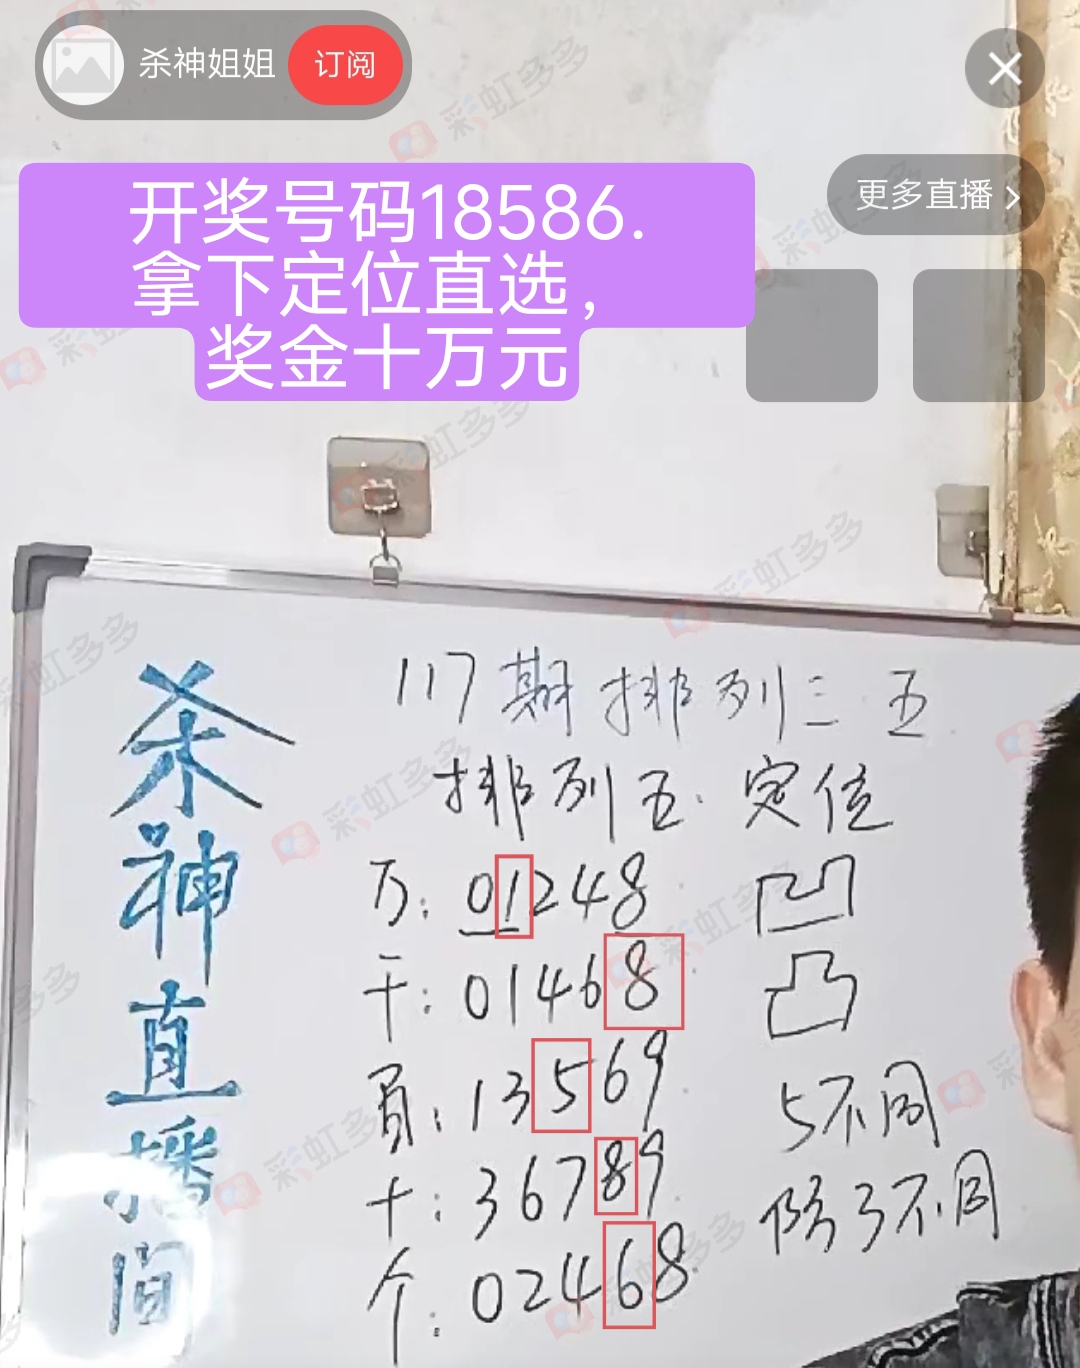 杀神姐姐 订阅
更多直播 >
开奖号码18586.
拿下定位直选，
奖金十万元
杀神直播间
117期排列三 五
排列五.定位
万:01248 凹
千:01468 凸
百:13569 5不同
十:36789 防3不同
个:02468
彩虹多多